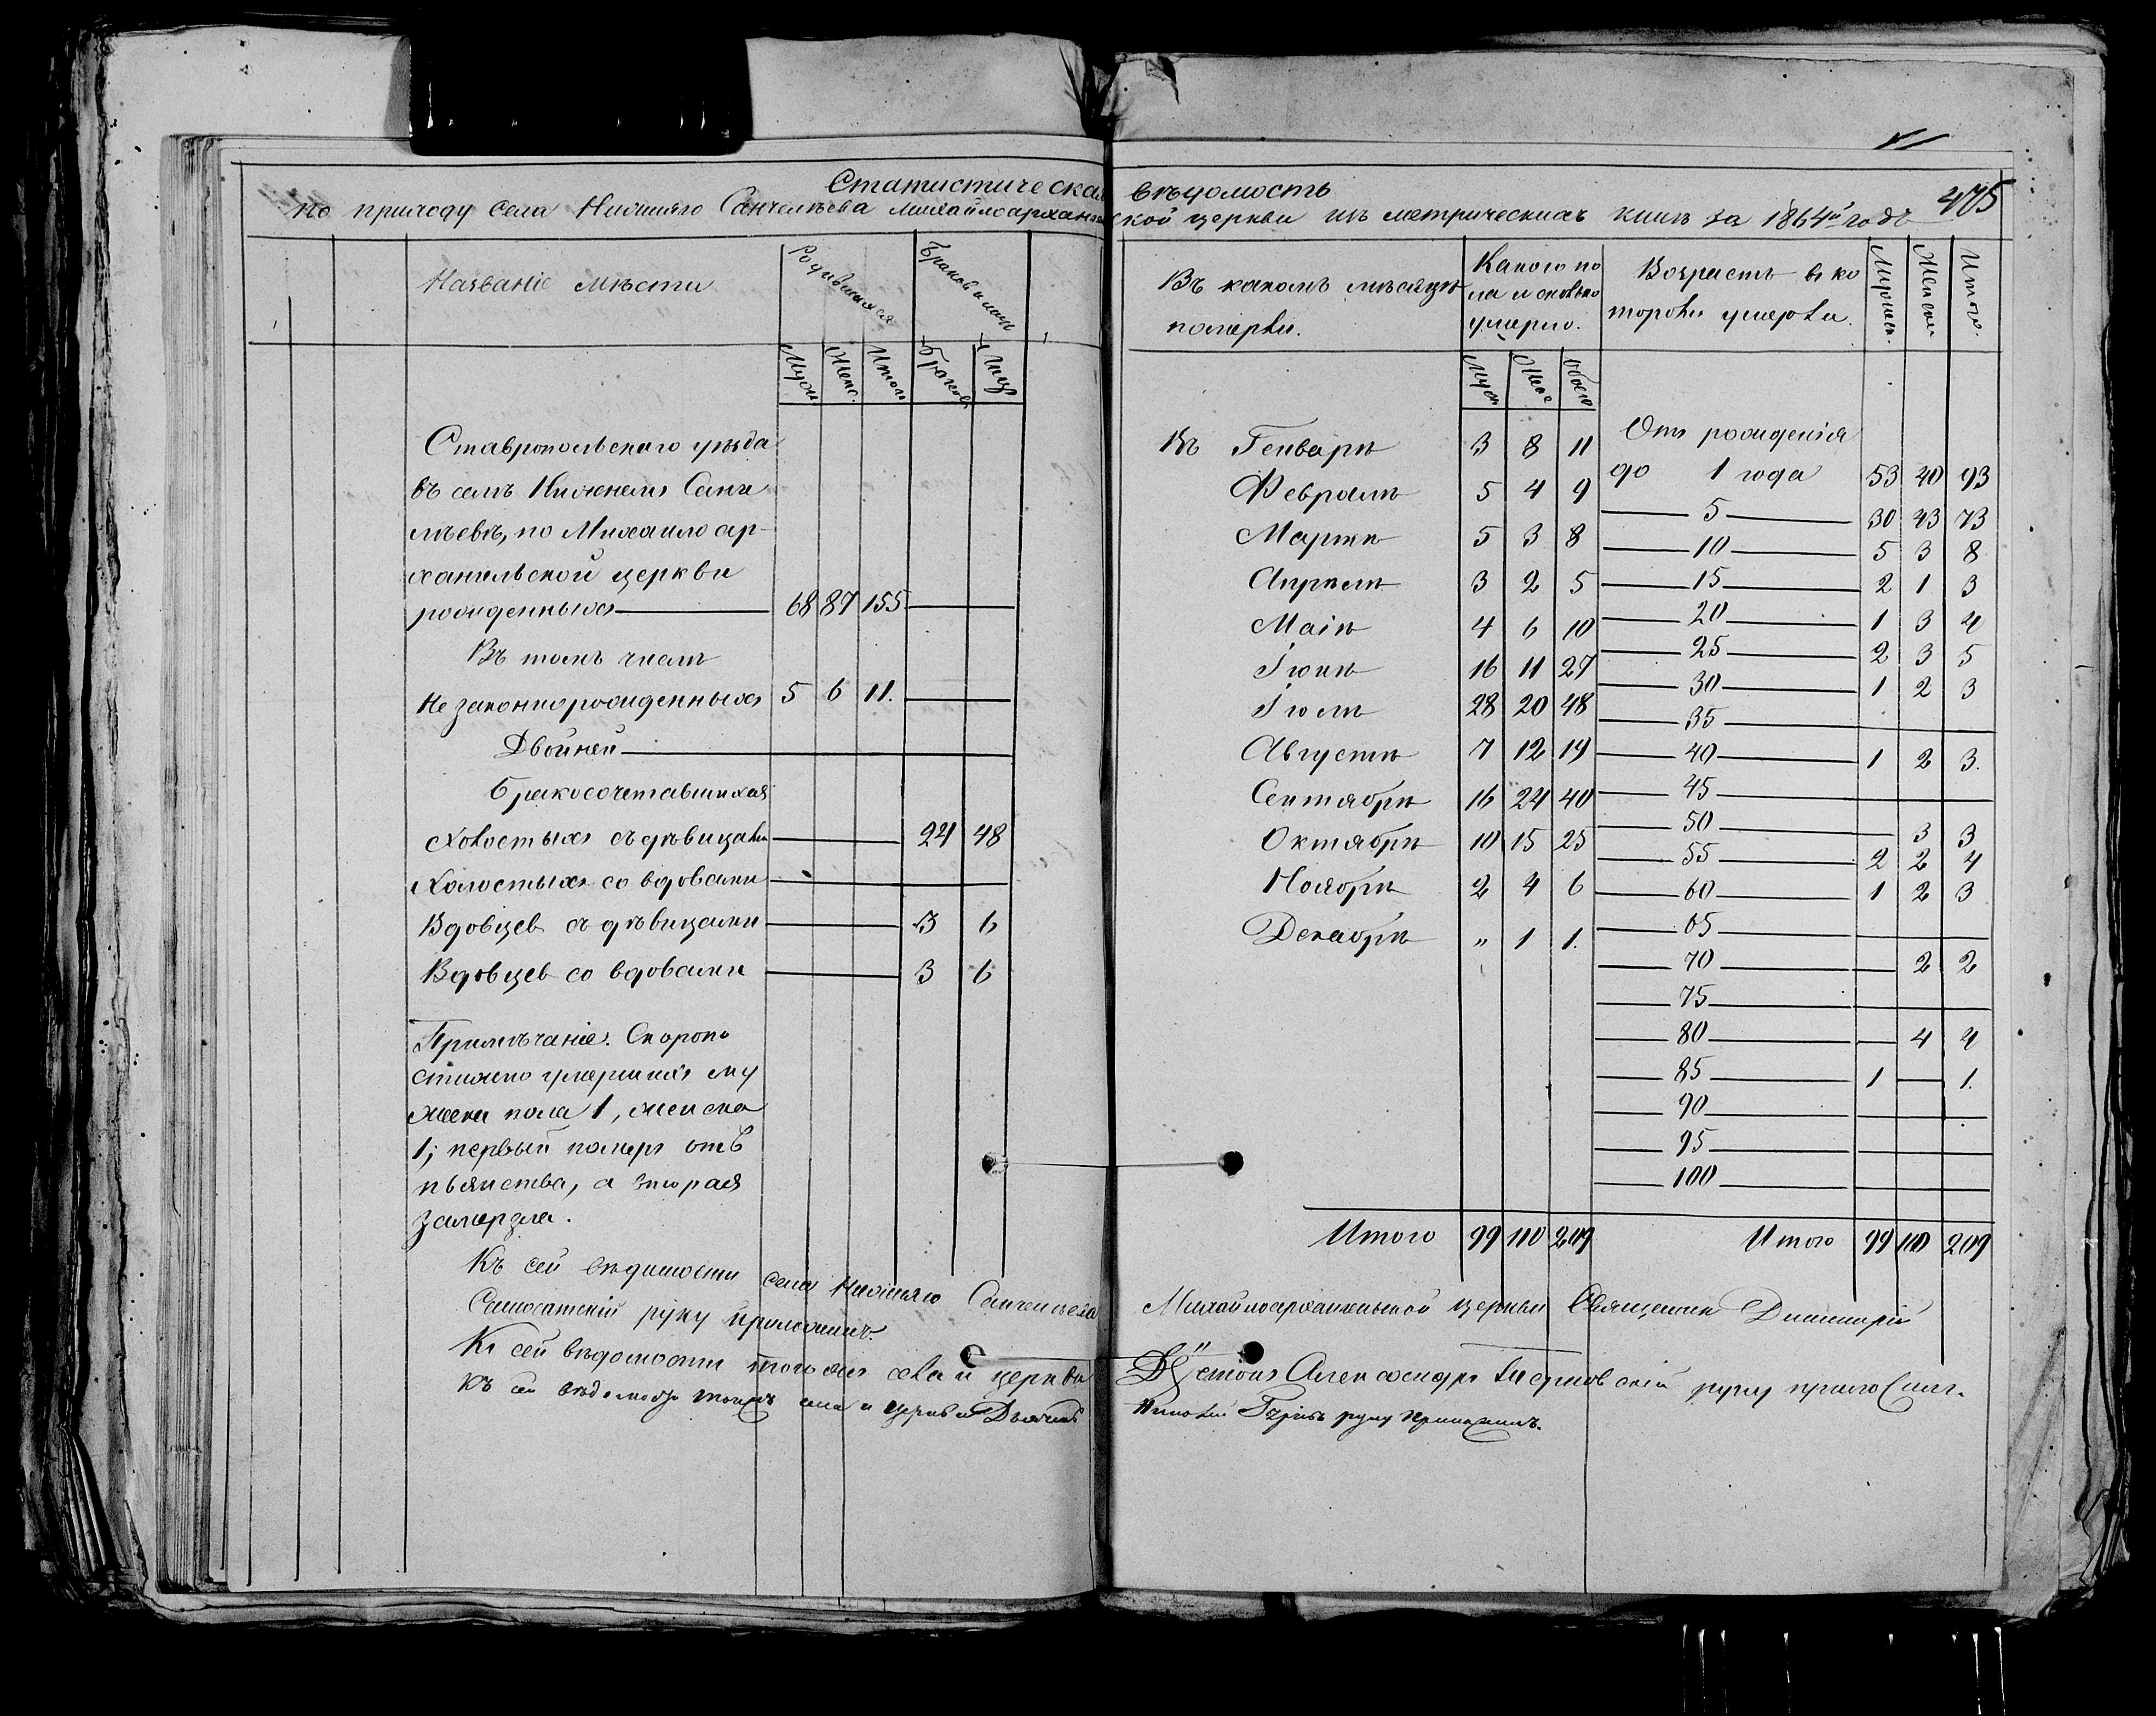 Статистическая вѣдомость
по приходу села Нижняго Санчелѣева Михайлоархангельской церкви изъ метрическихъ книгъ за 1864й годъ
475
Названіе мѣстъ
Родившихся
Браковъ и лицъ
Мужс.
Женс.
Итого
Браковъ
Лицъ
Ставропольскаго уѣзда
въ селѣ Нижнемъ Санче
лѣевѣ, по Михаило ар-
хангельской церкви
рожденныхъ 68 87 155
Въ томъ числѣ
Незаконнорожденныхъ 5 6 11.
Двойней
Бракосочетавшихся
Холостыхъ съ дѣвицами 24 48
Холостыхъ со вдовами
Вдовцев съ дѣвицами 3 6
Вдовцев со вдовами 3 6
Примѣчаніе. Скоропо
стижно умершихъ му
жеска пола 1, женска
1; первый померъ отъ
пьянства, а вторая
замерзла.
Въ какомъ мѣсяцѣ
померли.
Какого по
ла и сколько
умерло.
Мужс
Женс
Обоего
Въ Генварѣ 3 8 11
Февралѣ 5 4 9
Мартѣ 5 3 8
Апрѣлѣ 3 2 5
Маіѣ 4 6 10
Іюнѣ 16 11 27
Іюлѣ 28 20 48
Августѣ 7 12 19
Сентябрѣ 16 24 40
Октябрѣ 10 15 25
Ноябрѣ 2 4 6
Декабрѣ „ 1 1.
Итого 99 110 209
Возрастъ въ ко
торомъ умерли.
Мужеск.
Женски
Итого.
Отъ рожденія
до 1 года 53 40 93
5 30 43 73
10 5 3 8
15 2 1 3
20 1 3 4
25 2 3 5
30 1 2 3
35
40 1 2 3.
45
50 3 3
55 2 2 4
60 1 2 3
65
70 2 2
75
80 4 4
85 1 1.
90
95
100
Итого 99 110 209
Къ сей вѣдомости села Нижняго Санчелѣева Михайлоархангельской церкви Священникъ Димитрій
Самосатскій руку приложилъ.
Къ сей вѣдомости того же села и церкви Александръ руку приложилъ.
Къ сей вѣдомости тогожъ села и церкви Дьячекъ руку приложилъ.